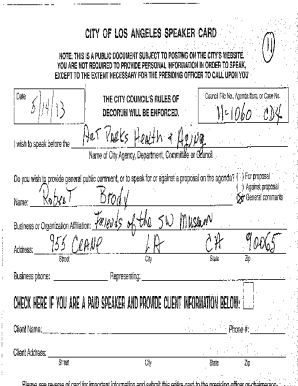 CITY OF LOS ANGELES SPEAKER CARD
11
NOTE: THIS IS A PUBLIC DOCUMENT SUBJECT TO POSTING ON THE CITY'S WEBSITE.
YOU ARE NOT REQUIRED TO PROVIDE PERSONAL INFORMATION IN ORDER TO SPEAK,
EXCEPT TO THE EXTENT NECESSARY FOR THE PRESIDING OFFICER TO CALL UPON YOU
Date
5/14/13
THE CITY COUNCIL'S RULES OF
DECORUM WILL BE ENFORCED.
Council File No., Agenda Item, or Case No.
11-1060 CD4
I wish to speak before the Art Parks Health & Aging
Name of City Agency, Department, Committee or Council
Do you wish to provide general public comment, or to speak for or against a proposal on the agenda? ( ) For proposal
( ) Against proposal
Name: Robert Brody (X) General comments
Business or Organization Affiliation: Friends of the SW Museum
Address: 955 LA CA 90065
Street City State Zip
Business phone: Representing:
CHECK HERE IF YOU ARE A PAID SPEAKER AND PROVIDE CLIENT INFORMATION BELOW:
Client Name: Phone #:
Client Address:
Street City State Zip
Please see reverse of card for important information and submit this entire card to the presiding officer or chairperson.